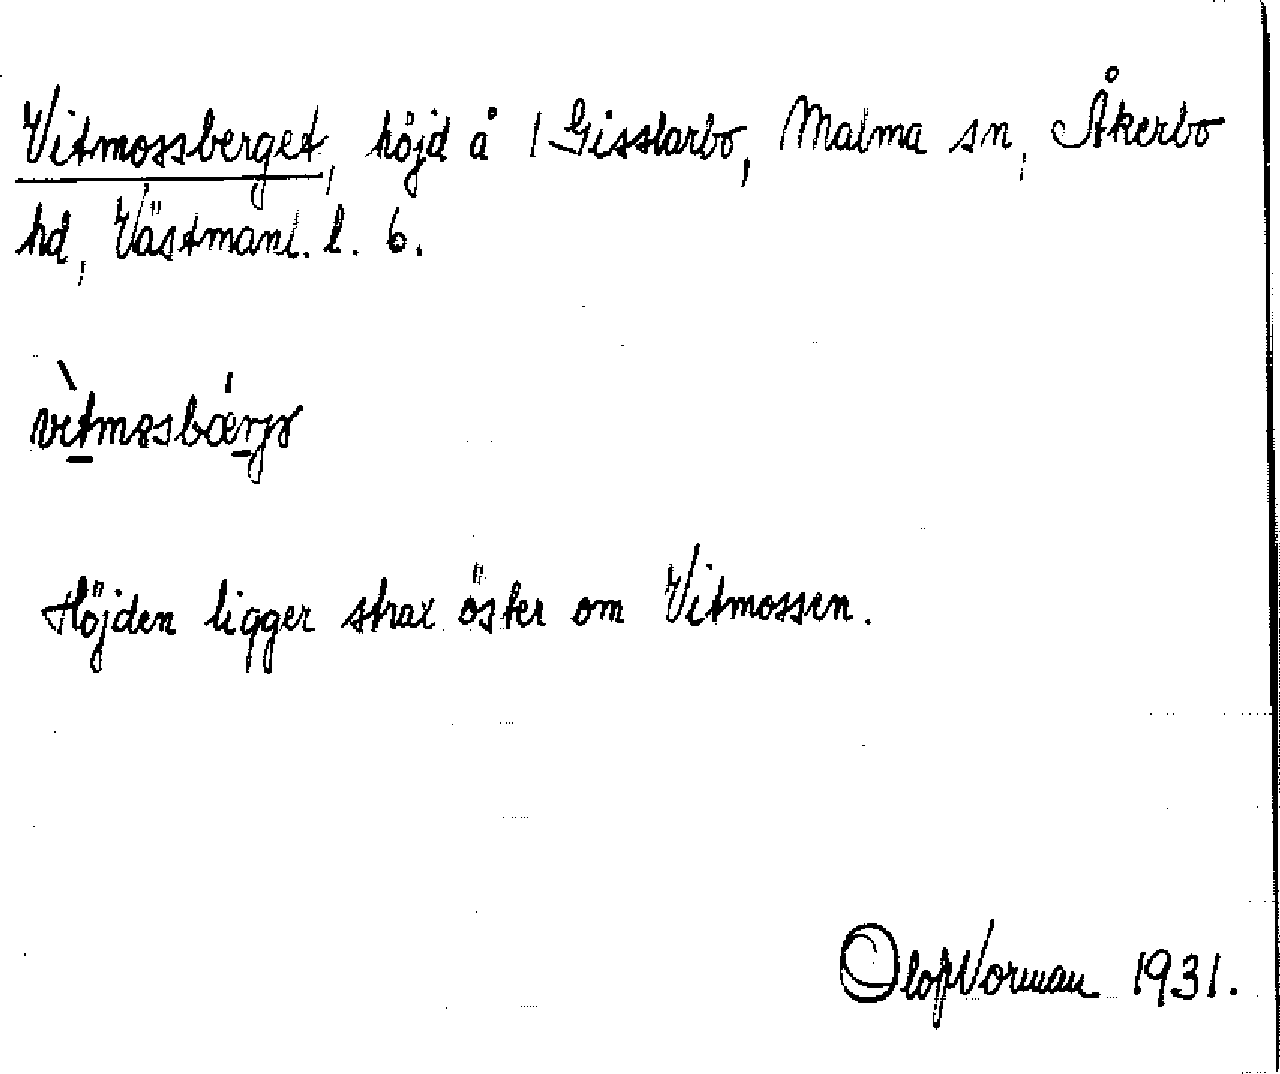 Vitmossberget, höjd å 1 Gisslarbo, Malma sn, Åkerbo
hd, Västmanl. l. 6.
Höjden ligger strax öster om Vitmossen.
Olof Norman 1931.